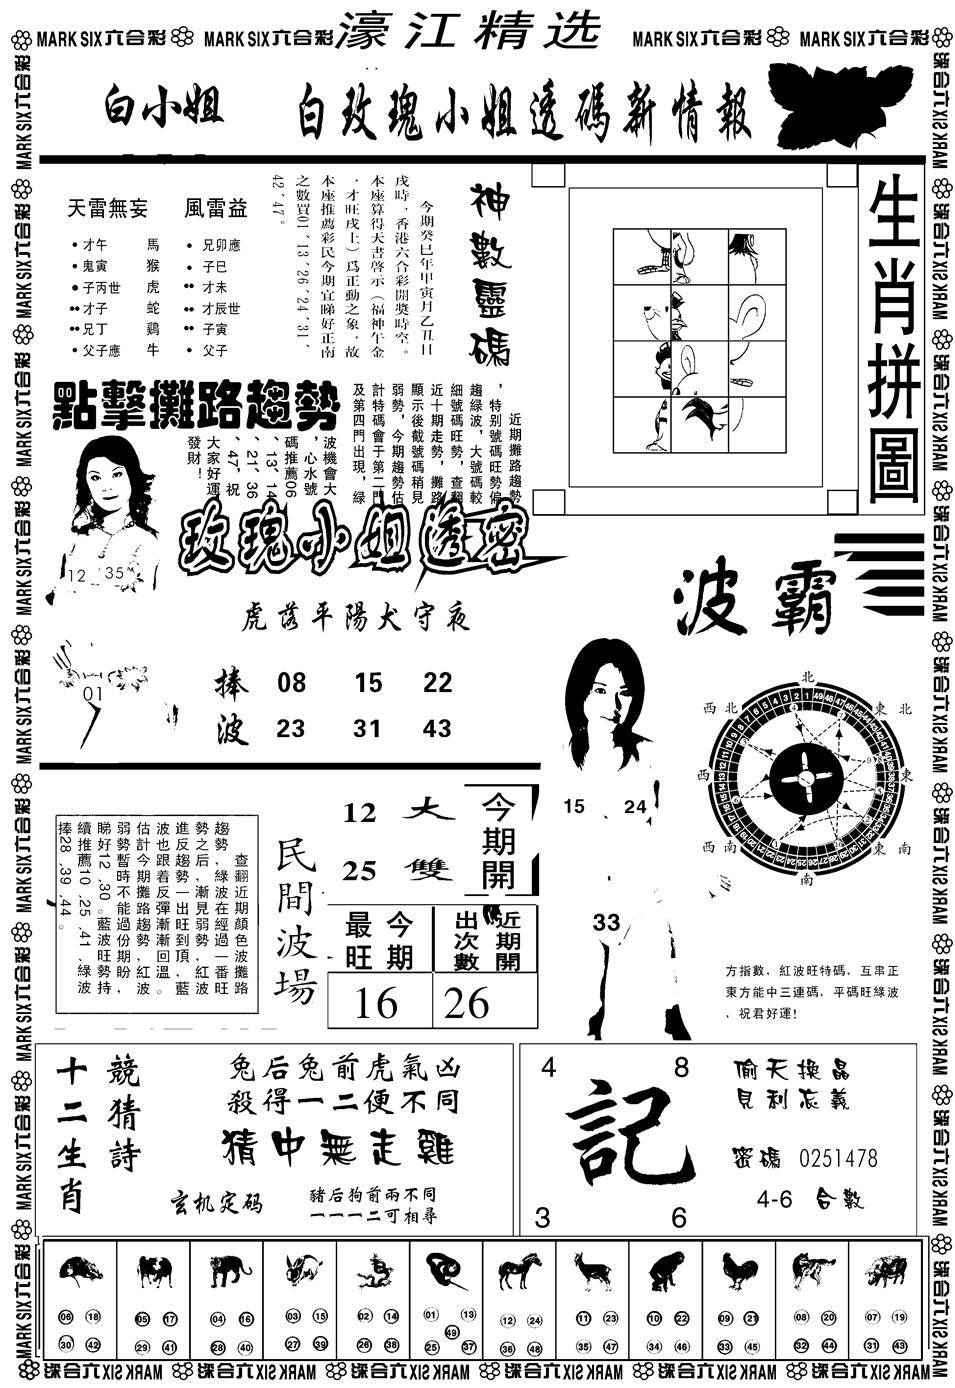 MARK SIX六合彩 MARK SIX六合彩 濠江精选 MARK SIX六合彩 MARK SIX六合彩
白小姐 白玫瑰小姐透碼新情報
天雷無妄 風雷益
才午 馬 兄卯應
鬼寅 猴 子巳
子丙世 虎 才未
才子 蛇 才辰世
兄丁 鷄 子寅
父子應 牛 父子
神數靈碼
今期癸巳年甲寅月乙丑日
戌時，香港六合彩開獎時空。
本座算得天書啓示（福神午金
，才旺戌土）爲正動之象，故
本座推薦彩民今期宜睇好正南
之數買01、13、26、24、31、
42、47。
生肖拼圖
點擊攤路趨勢
近期攤路趨勢
，特别號碼旺勢偏
趨綠波，大號碼較
細號碼旺勢，查翻
近十期走勢，攤路
顯示後截號碼稍見
弱勢，今期趨勢估
計特碼會于第二門
及第四門出現，綠
波機會大
，心水號
碼推薦06
、13、14
、21、36
、47，祝
大家好運
發財！
12 35
01
玫瑰小姐透密
虎落平陽犬守夜
捧波
08 15 22
23 31 43
波霸
15 24
33
北
西北 東北
西 東
西南 東南
南
方指數，紅波旺特碼，互串正
東方能中三連碼，平碼旺綠波
，祝君好運！
查翻近期顏色波攤路
趨勢，綠波在經過一番旺
勢之后，漸見弱勢，紅波
進反趨勢一出旺到頂，藍
波也跟着反彈漸漸回溫。
估計今期攤路趨勢紅波
弱勢暫時不能過份期盼，
睇好12、30。藍波旺勢持
續推薦10、25、41、綠波
捧28、39、44。
民間波場
12 大 今期開
25 雙
今期最旺 近期開出次數
16 26
十二生肖
競猜詩
兔后兔前虎氣凶
殺得一二便不同
猜中無走雞
玄机定码
豬后狗前兩不同
一一一二可相尋
4 8
記
3 6
偷天換晶
見利忘義
密碼 0251478
4-6 合數
06 18 05 17 04 16 03 15 02 14 01 13 12 24 11 23 10 22 09 21 08 20 07 19
49
30 42 29 41 28 40 27 39 26 38 25 37 36 48 35 47 34 46 33 45 32 44 31 43
MARK SIX六合彩 MARK SIX六合彩 MARK SIX六合彩 MARK SIX六合彩 MARK SIX六合彩 MARK SIX六合彩